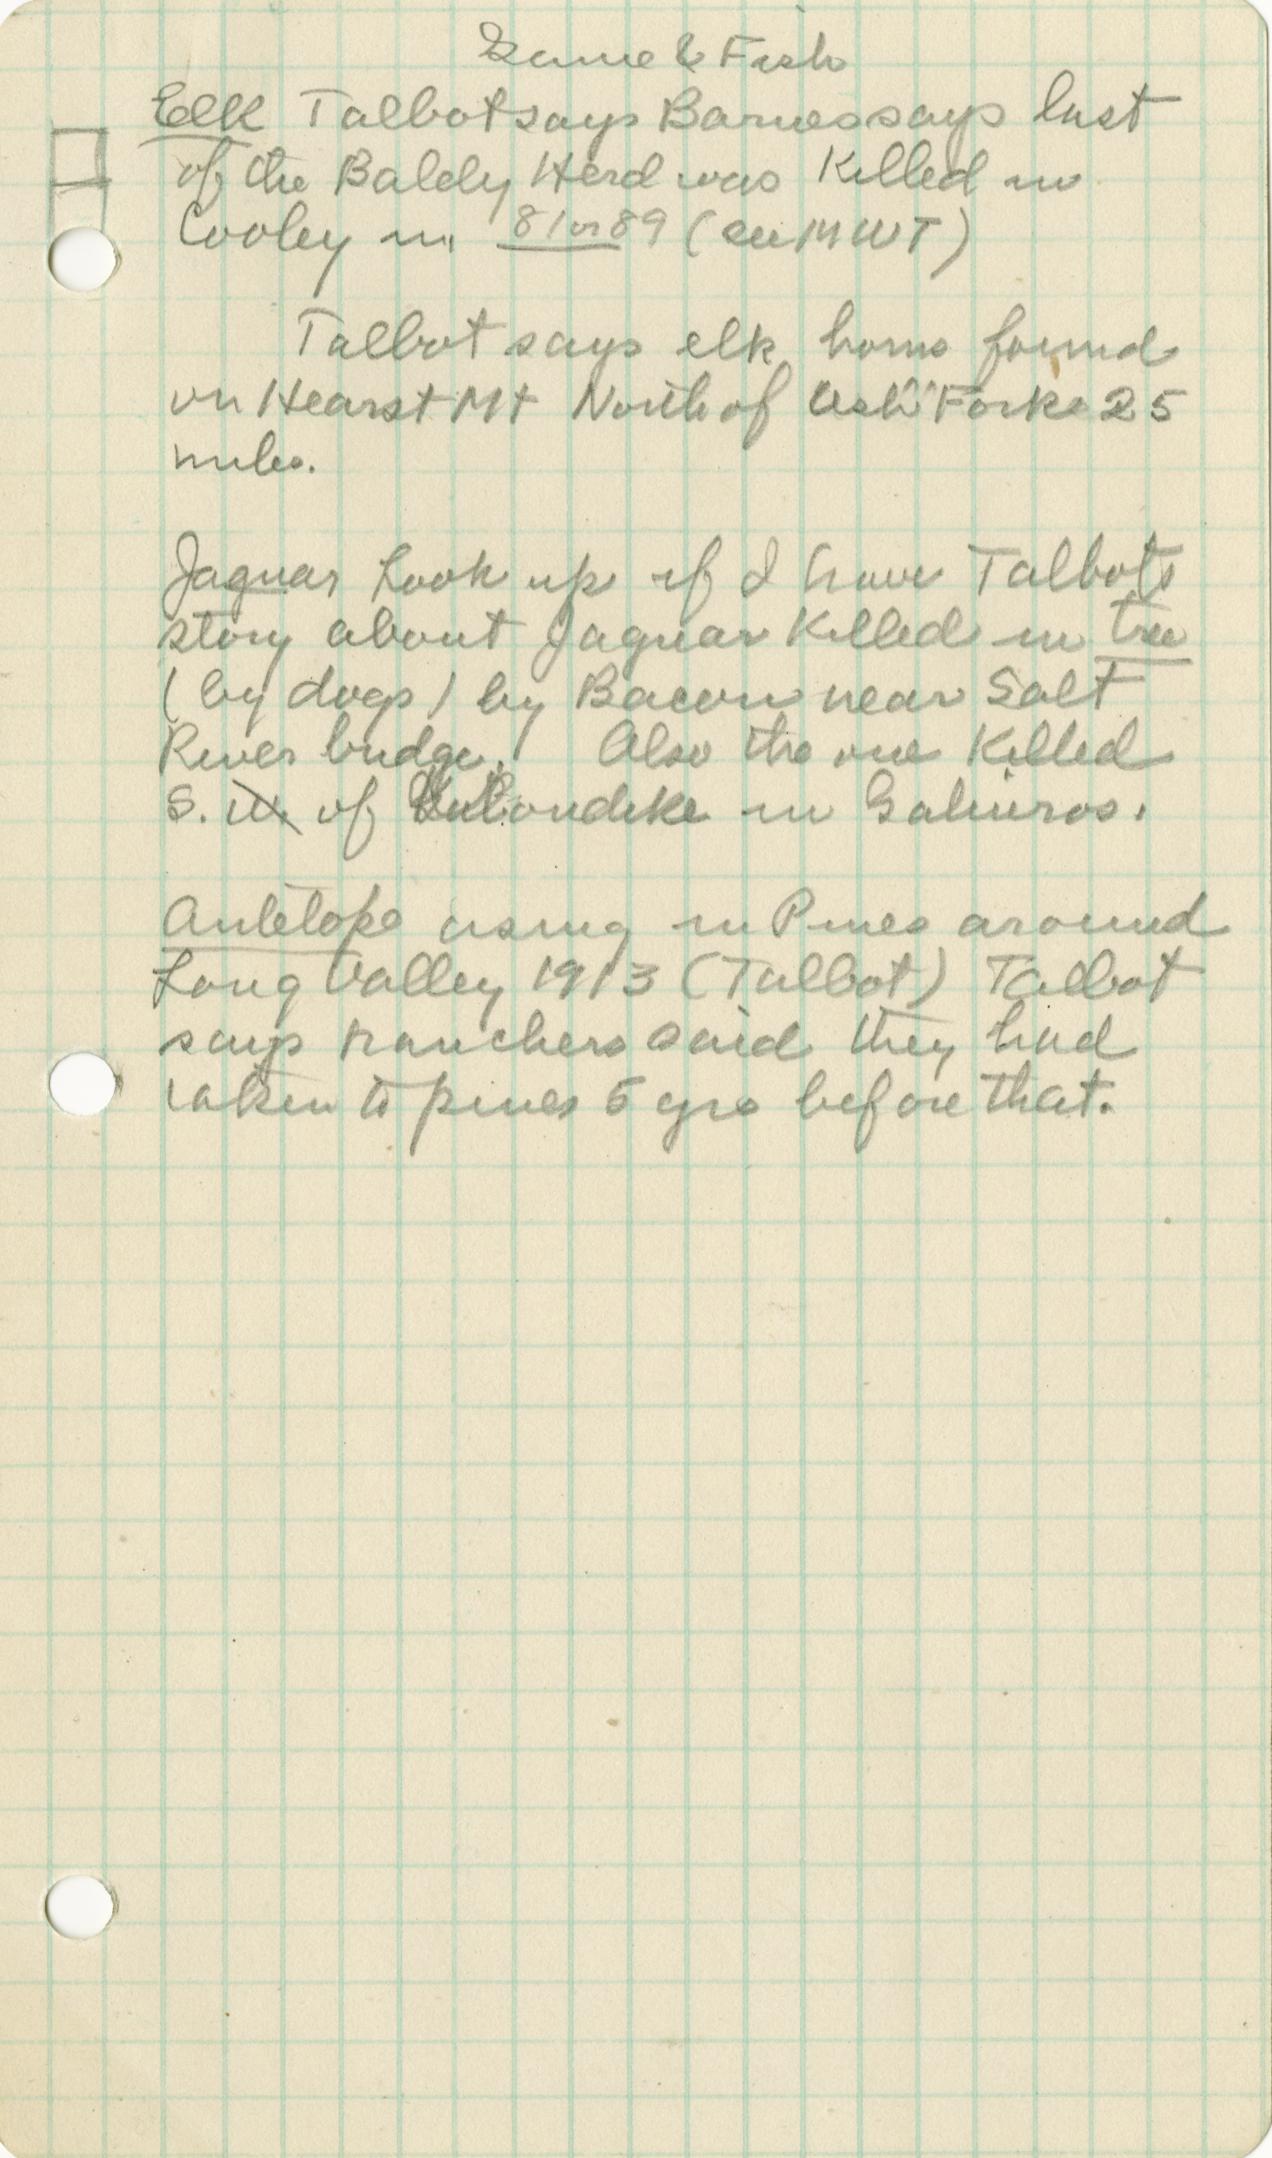 Game & Fish
Elk Talbot says Barnes says last
of the Baldy Herd was Killed in
Cooley in 81 or 89 (
Talbot says elk horns found
on Hearst Mt North of Ash Forks 25
miles.
Jaguar Look up if I have Talbots
story about Jaguar Killed in tree
(by dogs) by Bacon near Salt
River bridge. Also the one Killed
S. W. of Klondike in Galiuros.
Antelope using in Pines around
Long Valley 1913 (Talbot) Talbot
says ranchers said they had
taken to pines 5 yrs before that.